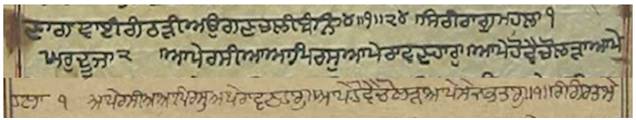 ਣਾਗਵਾਈਗੰਠੜੀਅਉਗਣਚਲੀਬੰਨਿ੪॥੧॥੨੪ ਸਿਰੀਰਾਗੁਮਹਲਾ ੧
ਘਰੁਦੂਜਾ੨ ॥ਆਪੇਰਸੀਆਆਪਿਰਸੁਆਪੇਰਾਵਣਹਾਰੁ॥ਆਪੇਹੋਵੈਚੋਲੜਾਆਪੇ
ਹਲਾ ੧ ਆਪੇਰਸੀਆਆਪਿਰਸੁਆਪੇਰਾਵਣਹਾਰੁ॥ਆਪੇਹੋਵੈਚੋਲੜਾਆਪੇਸੇਜਭਤਾਰੁ॥੧॥ਰੰਗਿਰਤਾਮੇ